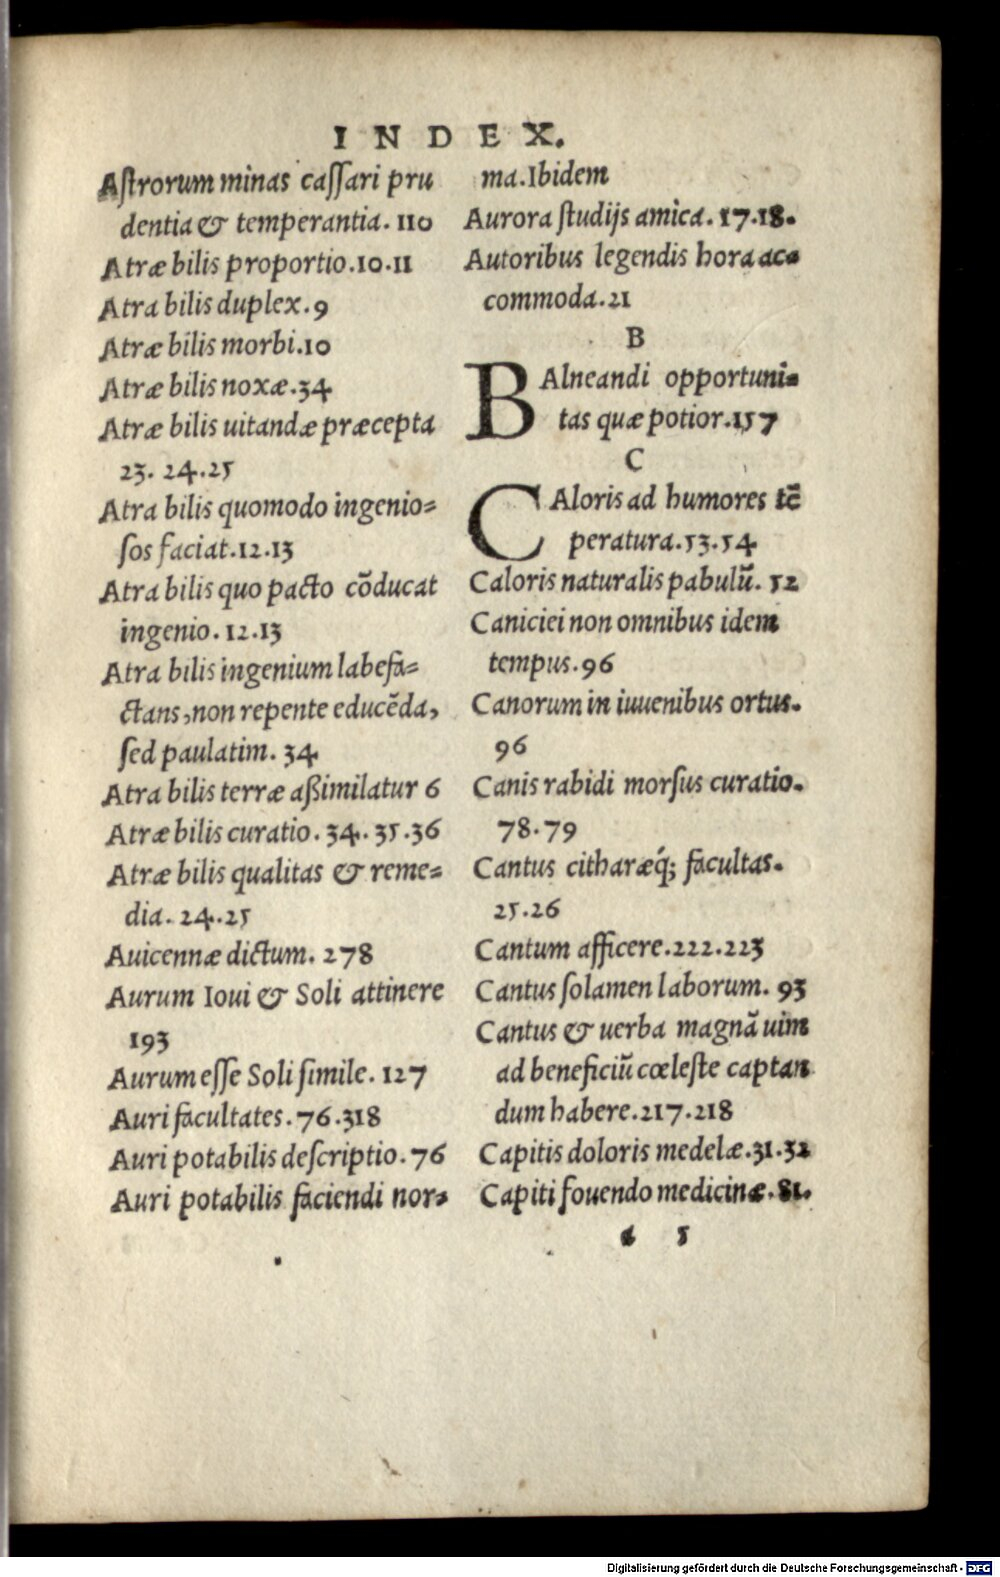 INDEX.
Astrorum minas cassari pru
dentia & temperantia. 110
Atræ bilis proportio. 10. 11
Atra bilis duplex. 9
Atræ bilis morbi. 10
Atræ bilis noxæ. 34
Atræ bilis uitandæ præcepta
23. 24. 25
Atra bilis quomodo ingenio=
sos faciat. 12. 13
Atra bilis quo pacto cōducat
ingenio. 12. 13
Atra bilis ingenium labefa=
ctans, non repente educēda,
sed paulatim. 34
Atra bilis terræ aßimilatur 6
Atræ bilis curatio. 34. 35. 36
Atræ bilis qualitas & reme=
dia. 24. 25
Auicennæ dictum. 278
Aurum Ioui & Soli attinere
193
Aurum esse Soli simile. 127
Auri facultates. 76. 318
Auri potabilis descriptio. 76
Auri potabilis faciendi nor=
ma. Ibidem
Aurora studijs amica. 17. 18.
Autoribus legendis hora ac=
commoda. 21
B
BAlneandi opportuni=
tas quæ potior. 157
C
CAloris ad humores tē
peratura. 53. 54
Caloris naturalis pabulū. 52
Caniciei non omnibus idem
tempus. 96
Canorum in iuuenibus ortus.
96
Canis rabidi morsus curatio.
78. 79
Cantus citharæq́; facultas.
25. 26
Cantum afficere. 222. 223
Cantus solamen laborum. 93
Cantus & uerba magnā uim
ad beneficiū cœleste captan
dum habere. 217. 218
Capitis doloris medelæ. 31. 32
Capiti fouendo medicinæ. 81.
a 5
Digitalisierung gefördert durch die Deutsche Forschungsgemeinschaft - DFG